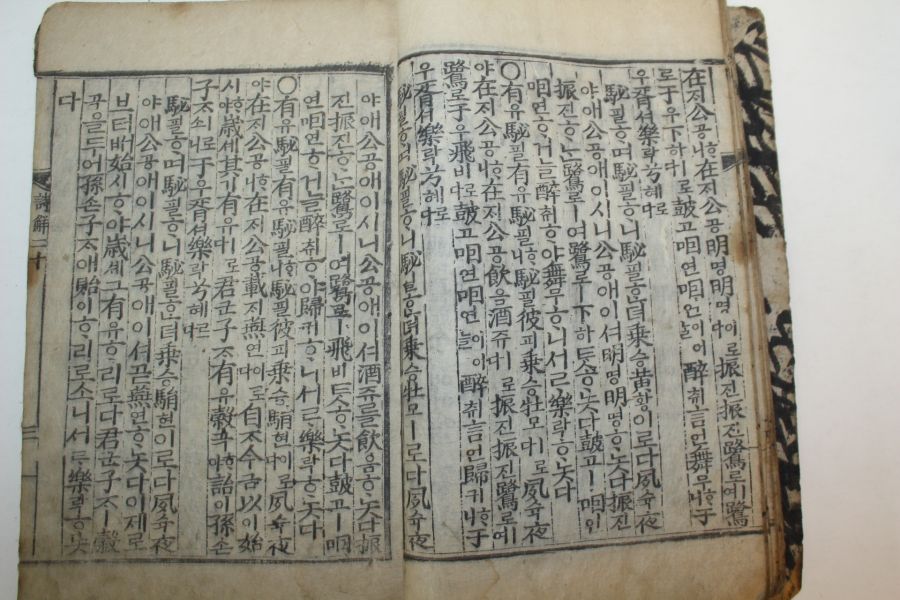 在ᄌᆡ公공ᄒᆞ니在ᄌᆡ公공明명明명이로다振진振진鷺로예鷺
로于우下하ㅣ로다鼓고咽연咽연이어ᄂᆞᆯ醉ᄎᆔ言언舞무ᄒᆞ니于
우胥셔樂락兮혜로다
駜필ᄒᆞ며駜필ᄒᆞ니駜필ᄒᆞᆫ뎌乘승黃황이로다夙슉夜
야애公공애이시니公공애이셔明명明명ᄒᆞ놋다振진
振진ᄒᆞᄂᆞᆫ鷺로ㅣ여鷺로ㅣ下하ᄐᆞᆺᄒᆞ놋다鼓고ㅣ咽연
咽연ᄒᆞ거ᄂᆞᆯ醉ᄎᆔᄒᆞ야舞무ᄒᆞ니서르樂락ᄒᆞ놋다
○有유駜필有유駜필ᄒᆞ니駜필彼피乘승牡모ㅣ로다夙슉夜
야在ᄌᆡ公공ᄒᆞ니在ᄌᆡ公공飮음酒쥬ㅣ로다振진振진鷺로예
鷺로于우飛비로다鼓고咽연咽연이어ᄂᆞᆯ醉ᄎᆔ言언歸귀ᄒᆞ니于
우胥셔樂락兮혜로다
駜필ᄒᆞ며駜필ᄒᆞ니駜필ᄒᆞᆫ뎌乘승牡모ㅣ로다夙슉夜
야애公공애이시니公공애이셔酒쥬를飮음ᄒᆞ놋다振
진振진ᄒᆞᄂᆞᆫ鷺로ㅣ여鷺로ㅣ飛비ᄐᆞᆺᄒᆞ놋다鼓고ㅣ咽
연咽연ᄒᆞ거ᄂᆞᆯ醉ᄎᆔᄒᆞ야歸귀ᄒᆞ니서르樂락ᄒᆞ놋다
○有유駜필有유駜필ᄒᆞ니駜필彼피乘승駽현이로다夙슉夜
야在ᄌᆡ公공ᄒᆞ니在ᄌᆡ公공載ᄌᆡ燕연이로다自ᄌᆞ今금以이始
시ᄒᆞ야歲셰其기有유ㅣ로다君군子ᄌᆞ有유穀곡ᄒᆞ야詒이孫손
子ᄌᆞㅣ로소니于우胥셔樂락兮혜로다
駜필ᄒᆞ며駜필ᄒᆞ니駜필ᄒᆞᆫ뎌乘승駽현이로다夙슉夜
야애公공애이시니公공애이셔곧燕연ᄒᆞ놋다이제로
브터ᄡᅥ始시ᄒᆞ야歲셰그有유ᄒᆞ리로다君군子ᄌᆞㅣ穀
곡을두어孫손子ᄌᆞ애貽이ᄒᆞ리로소니서르樂락ᄒᆞ놋
다
詩解二十